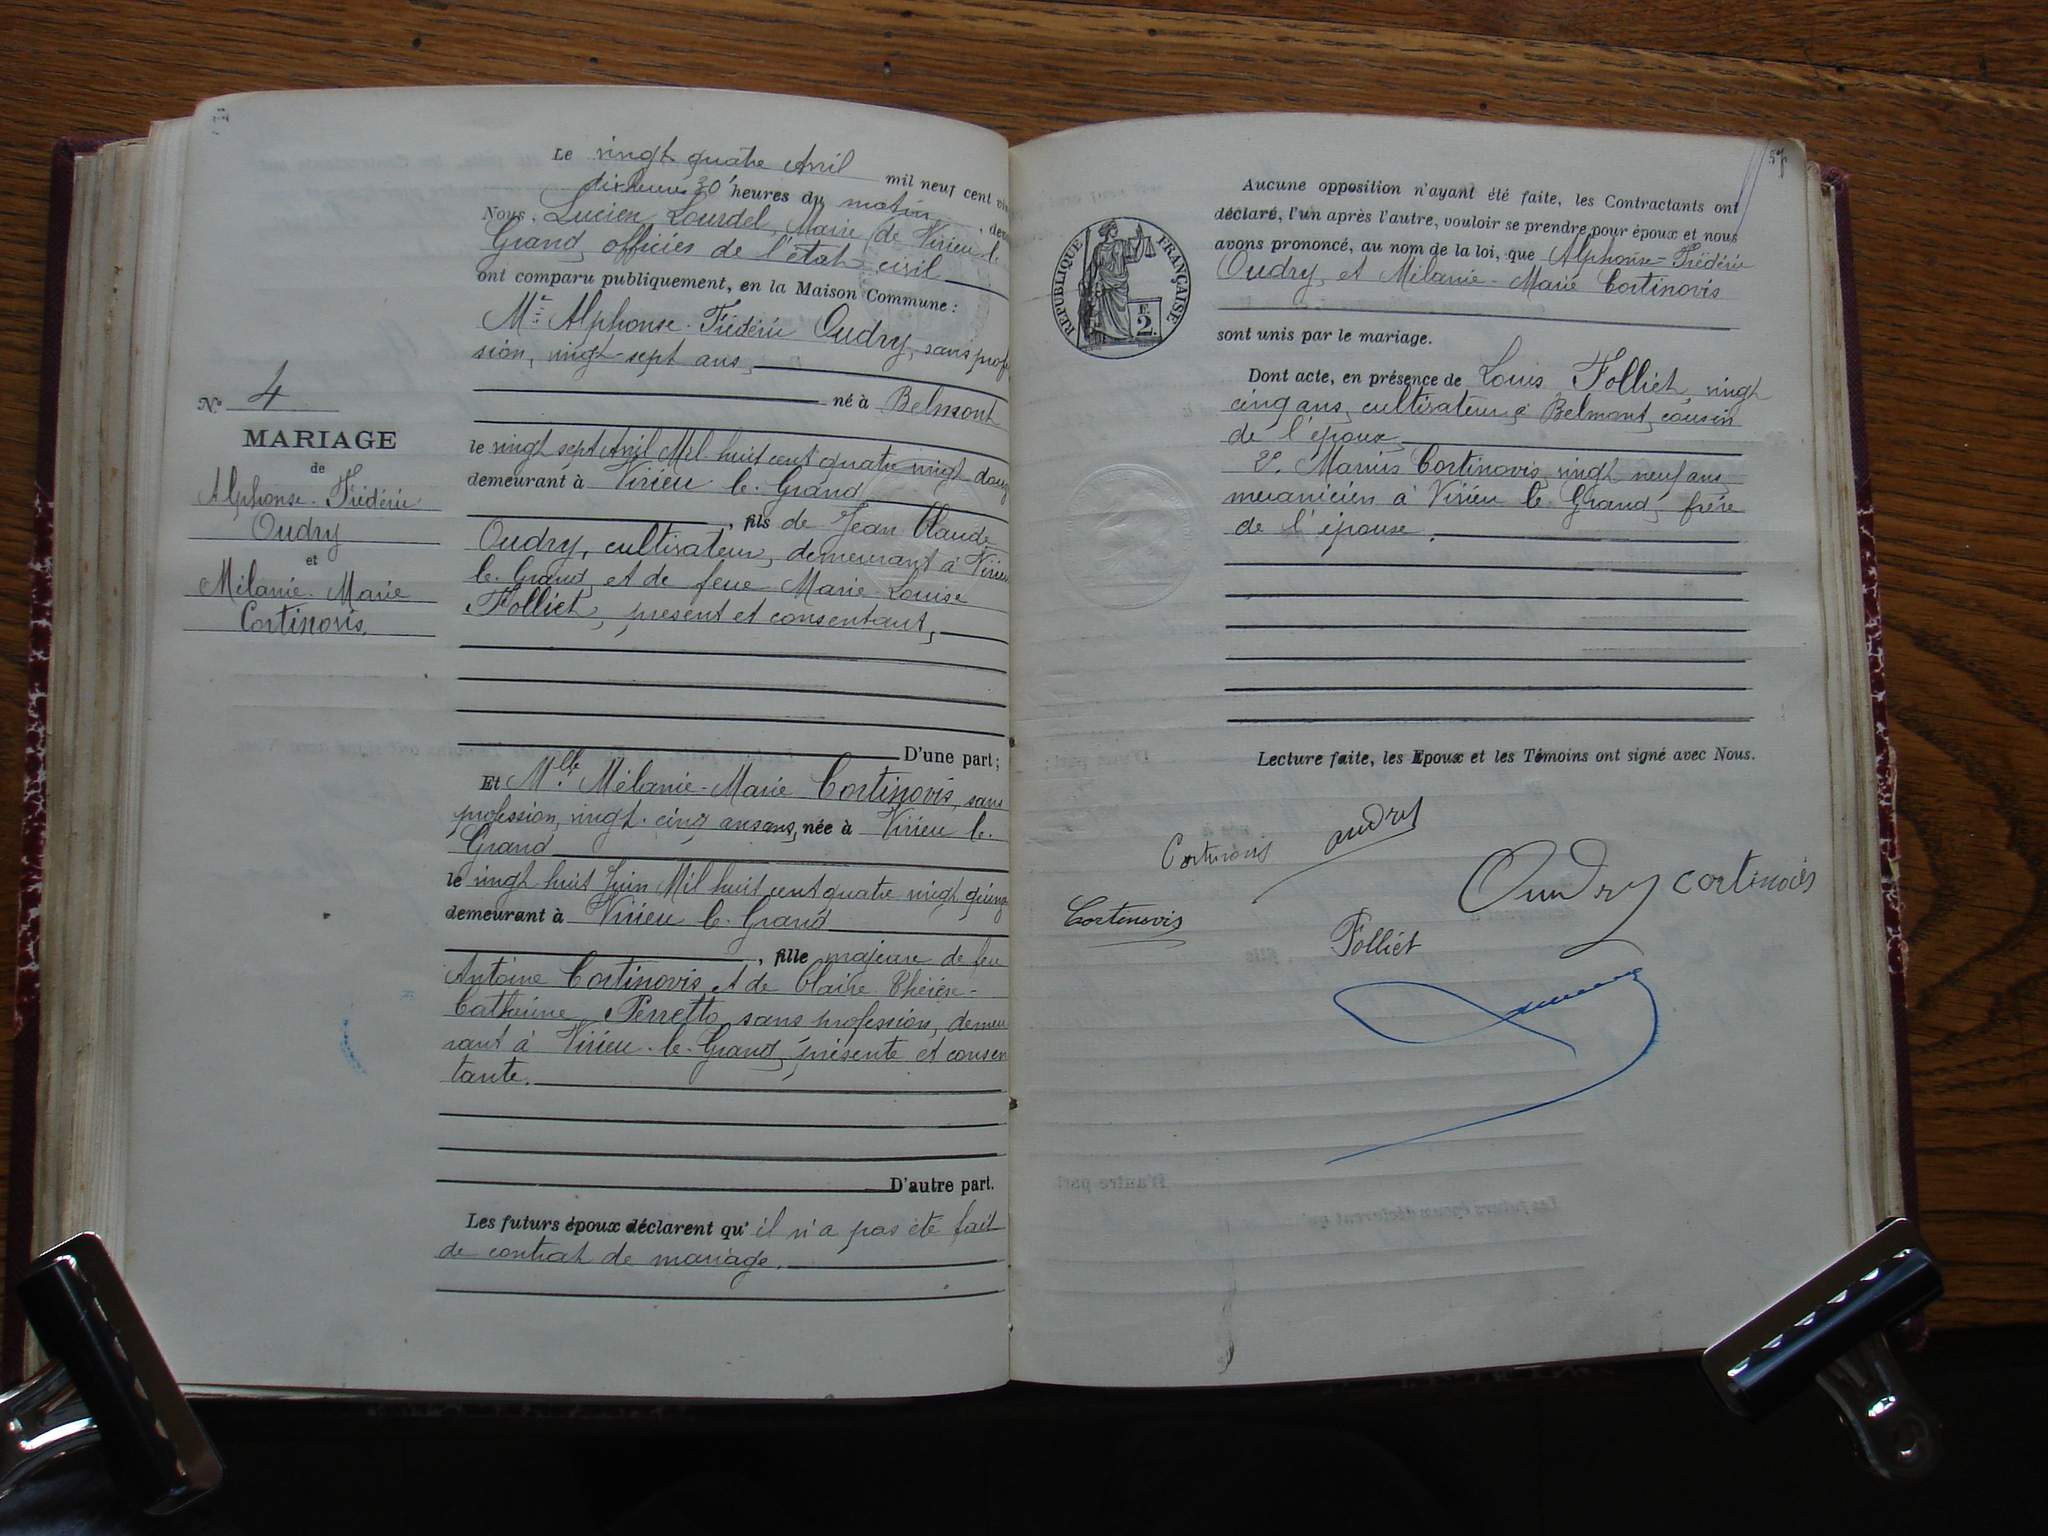 Le vingt quatre Avril mil neuf cent
dix heures 30' heures du matin,
Nous, Lucien Lourdel, Maire de Virieu le
Grand, officier de l'état civil
ont comparu publiquement, en la Maison Commune :
Mr Alphonse-Frédéric Oudry, sans profes
sion, vingt-sept ans,
né à Belmont
le vingt sept Avril Mil huit cent quatre vingt douze
demeurant à Virieu le Grand
, fils de Jean Claude
Oudry, cultivateur, demeurant à Virieu
le Grand, et de feue Marie-Louise
Folliet, présent et consentant,
D'une part ;
Et Mlle Mélanie-Marie Cortinovis, sans
profession, vingt-cinq ans ans, née à Virieu le
Grand
le vingt huit Juin Mil huit cent quatre vingt quinze
demeurant à Virieu le Grand
, fille majeure de feu
Antoine Cortinovis, et de Claire Thérèse-
Catherine Perretto, sans profession, demeu
rant à Virieu-le-Grand, présente et consen
tante.
D'autre part.
Les futurs époux déclarent qu'il n'a pas été fait
de contrat de mariage.
N° 4
MARIAGE
de
Alphonse-Frédéric
Oudry
et
Mélanie-Marie
Cortinovis.
57
Aucune opposition n'ayant été faite, les Contractants ont
déclaré, l'un après l'autre, vouloir se prendre pour époux et nous
avons prononcé, au nom de la loi, que Alphonse-Frédéric
Oudry, et Mélanie-Marie Cortinovis
sont unis par le mariage.
RÉPUBLIQUE FRANÇAISE
F.
2.
Dont acte, en présence de Louis Folliet, vingt
cinq ans, cultivateur à Belmont, cousin
de l'époux
2°. Marius Cortinovis, vingt neuf ans,
mecanicien à Virieu le Grand, frère
de l'épouse.
Lecture faite, les Epoux et les Témoins ont signé avec Nous.
Cortinovis
oudry
Oudry cortinovis
Cortinovis
Folliet